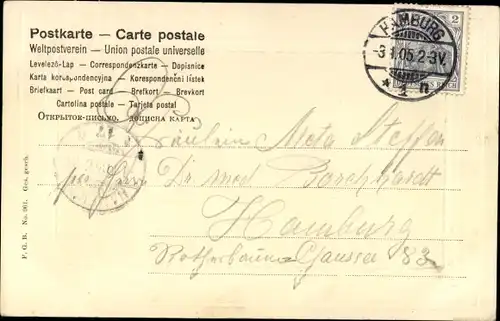 Postkarte — Carte postale
Weltpostverein — Union postale universelle
Levelező-Lap — Correspondenzkarte — Dopisnice
Karta korespondencyjna — Korespondenční lístek
Briefkaart — Post card — Brefkort — Brevkort
Cartolina postale — Tarjeta postal
Открытое-письмо. дописна карта
HAMBURG
-3.1.05. 2-3V.
* 1 n
2
REICH
Fräulein Meta Steffen
Dr med Borchhardt
Hamburg
Rotherbaum Chaussee 83
P. G. B. No. 261. Ges. gesch.